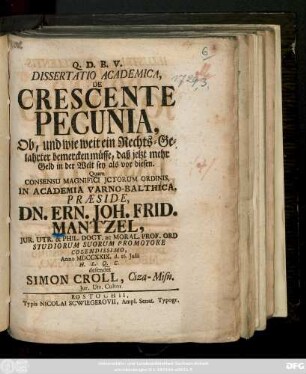 6
1729,3.
Q. D. B. V.
DISSERTATIO ACADEMICA,
DE
CRESCENTE
PECUNIA,
Ob, und wie weit ein Rechts-Ge-
lahrter bemercken müsse, daß jetzt mehr
Geld in der Welt sey als vor diesen.
Quam
CONSENSU MAGNIFICI JCTORUM ORDINIS,
IN ACADEMIA VARNO-BALTHICA,
PRÆSIDE,
DN. ERN. JOH. FRID.
MANTZEL,
JUR. UTR. & PHIL. DOCT. ac MORAL. PROF. ORD
STUDIORUM SUORUM PROMOTORE
COLENDISSIMO,
Anno MDCCXXIX. d. Julii
H. L. Q. C.
defendet
SIMON CROLL, Ciza-Misn.
Jur. Div. Cultor.
ROSTOCHII,
Typis NICOLAI SCWIEGEROVII, Ampl. Senat. Typogr.